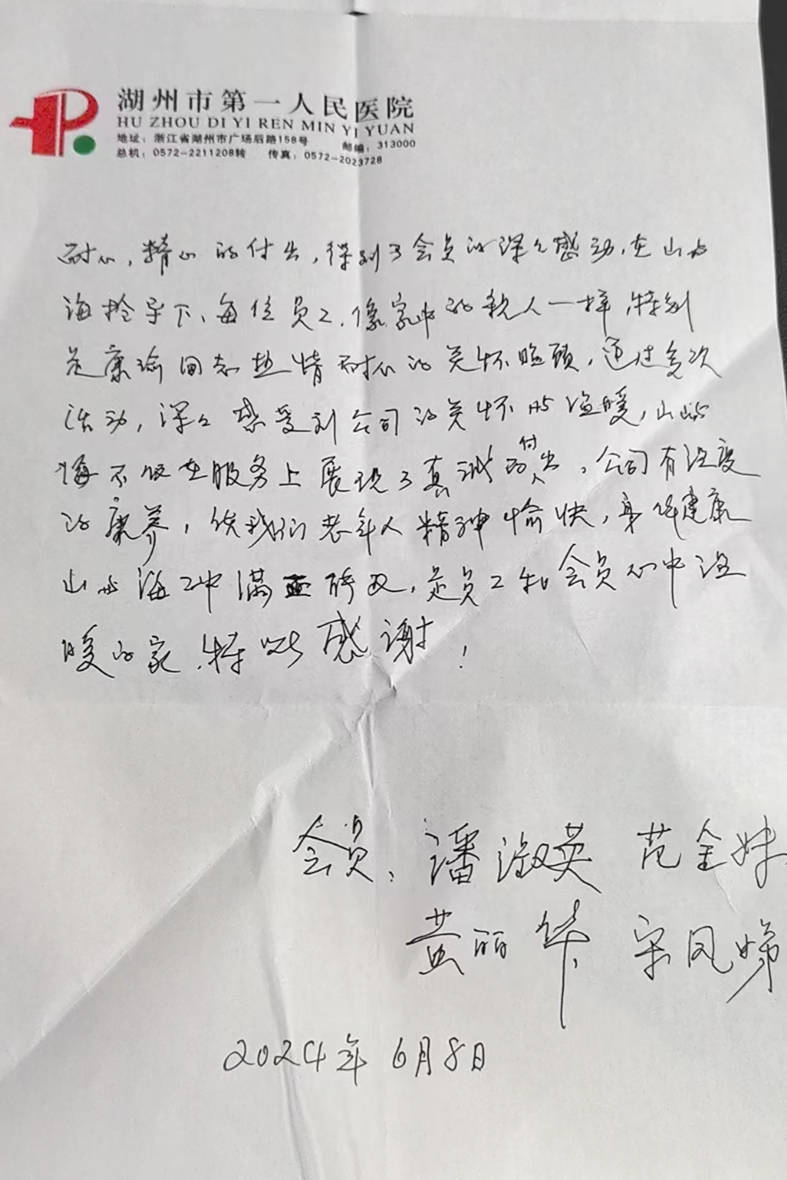 湖州市第一人民医院
HU ZHOU DI YI REN MIN YI YUAN
地址：浙江省湖州市广场后路158号 邮编：313000
总机：0572-2211208转 传真：0572-2023728
耐心，精心的付出，得到了会员的深深感动，在山屿
海领导下、每位员工，像家中的亲人一样，特别
是康瑜同志热情耐心的关怀照顾，通过多次
活动，深深感受到公司的关怀与温暖，山屿
海不仅在服务上展现了真诚的付出，公司有温度
的康养，使我们老年人精神愉快，身体健康
山屿海冲满，是员工和会员心中温
暖的家，特此感谢！
会员：潘淑英 范金妹
黄丽华 宋凤娣
2024年6月8日